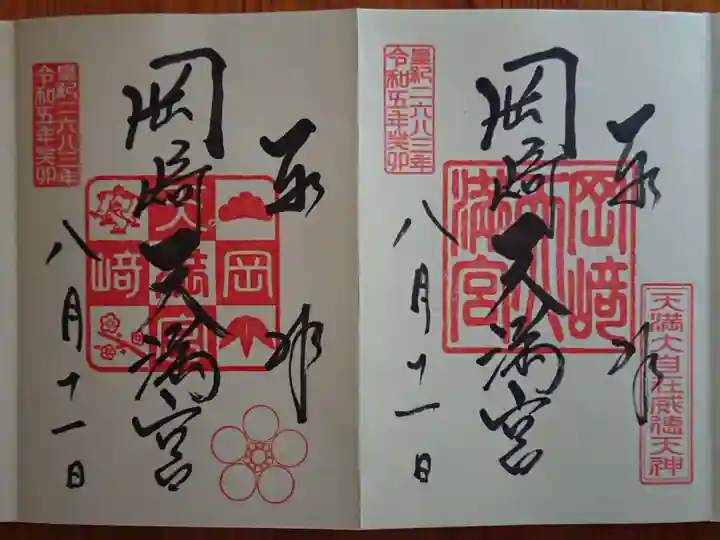 奉
拝
岡﨑
天満宮
岡﨑天満宮
皇紀二六八三年
令和五年癸卯
八月十一日
天満大自在威徳天神
奉
拝
岡﨑
天満宮
岡﨑天満宮
皇紀二六八三年
令和五年癸卯
八月十一日